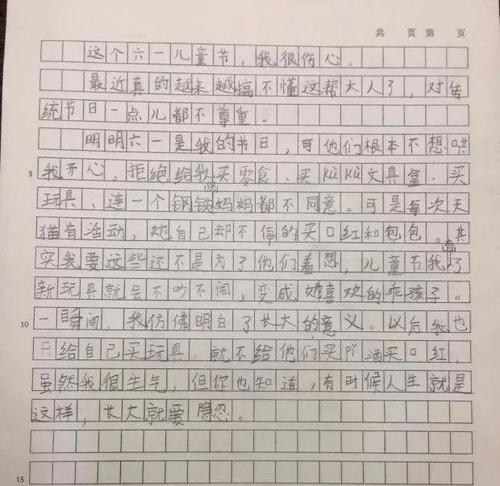 共 页 第 页
这个六一儿童节，我很伤心。
最近真的越来越搞不懂这帮大人了，对传
统节日一点儿都不尊重。
明明六一是我的节日，可他们根本不想哄
5 我开心。拒绝给我买零食、买KùKù文具盒、买
玩具，连一个钢铁侠妈妈都不同意。可是每次天
猫有活动，她自己却不停的买口红和包包。其
实我要这些还不是为了他们着想，儿童节我有了
新玩具就会不吵不闹，变成她喜欢的乖孩子。
10 一瞬间，我仿佛明白了长大的意义。以后我也
只给自己买玩具，就不给他们买
买口红，
虽然我很生气，但你也知道，有时候人生就是
这样，长大就要隐忍。
15